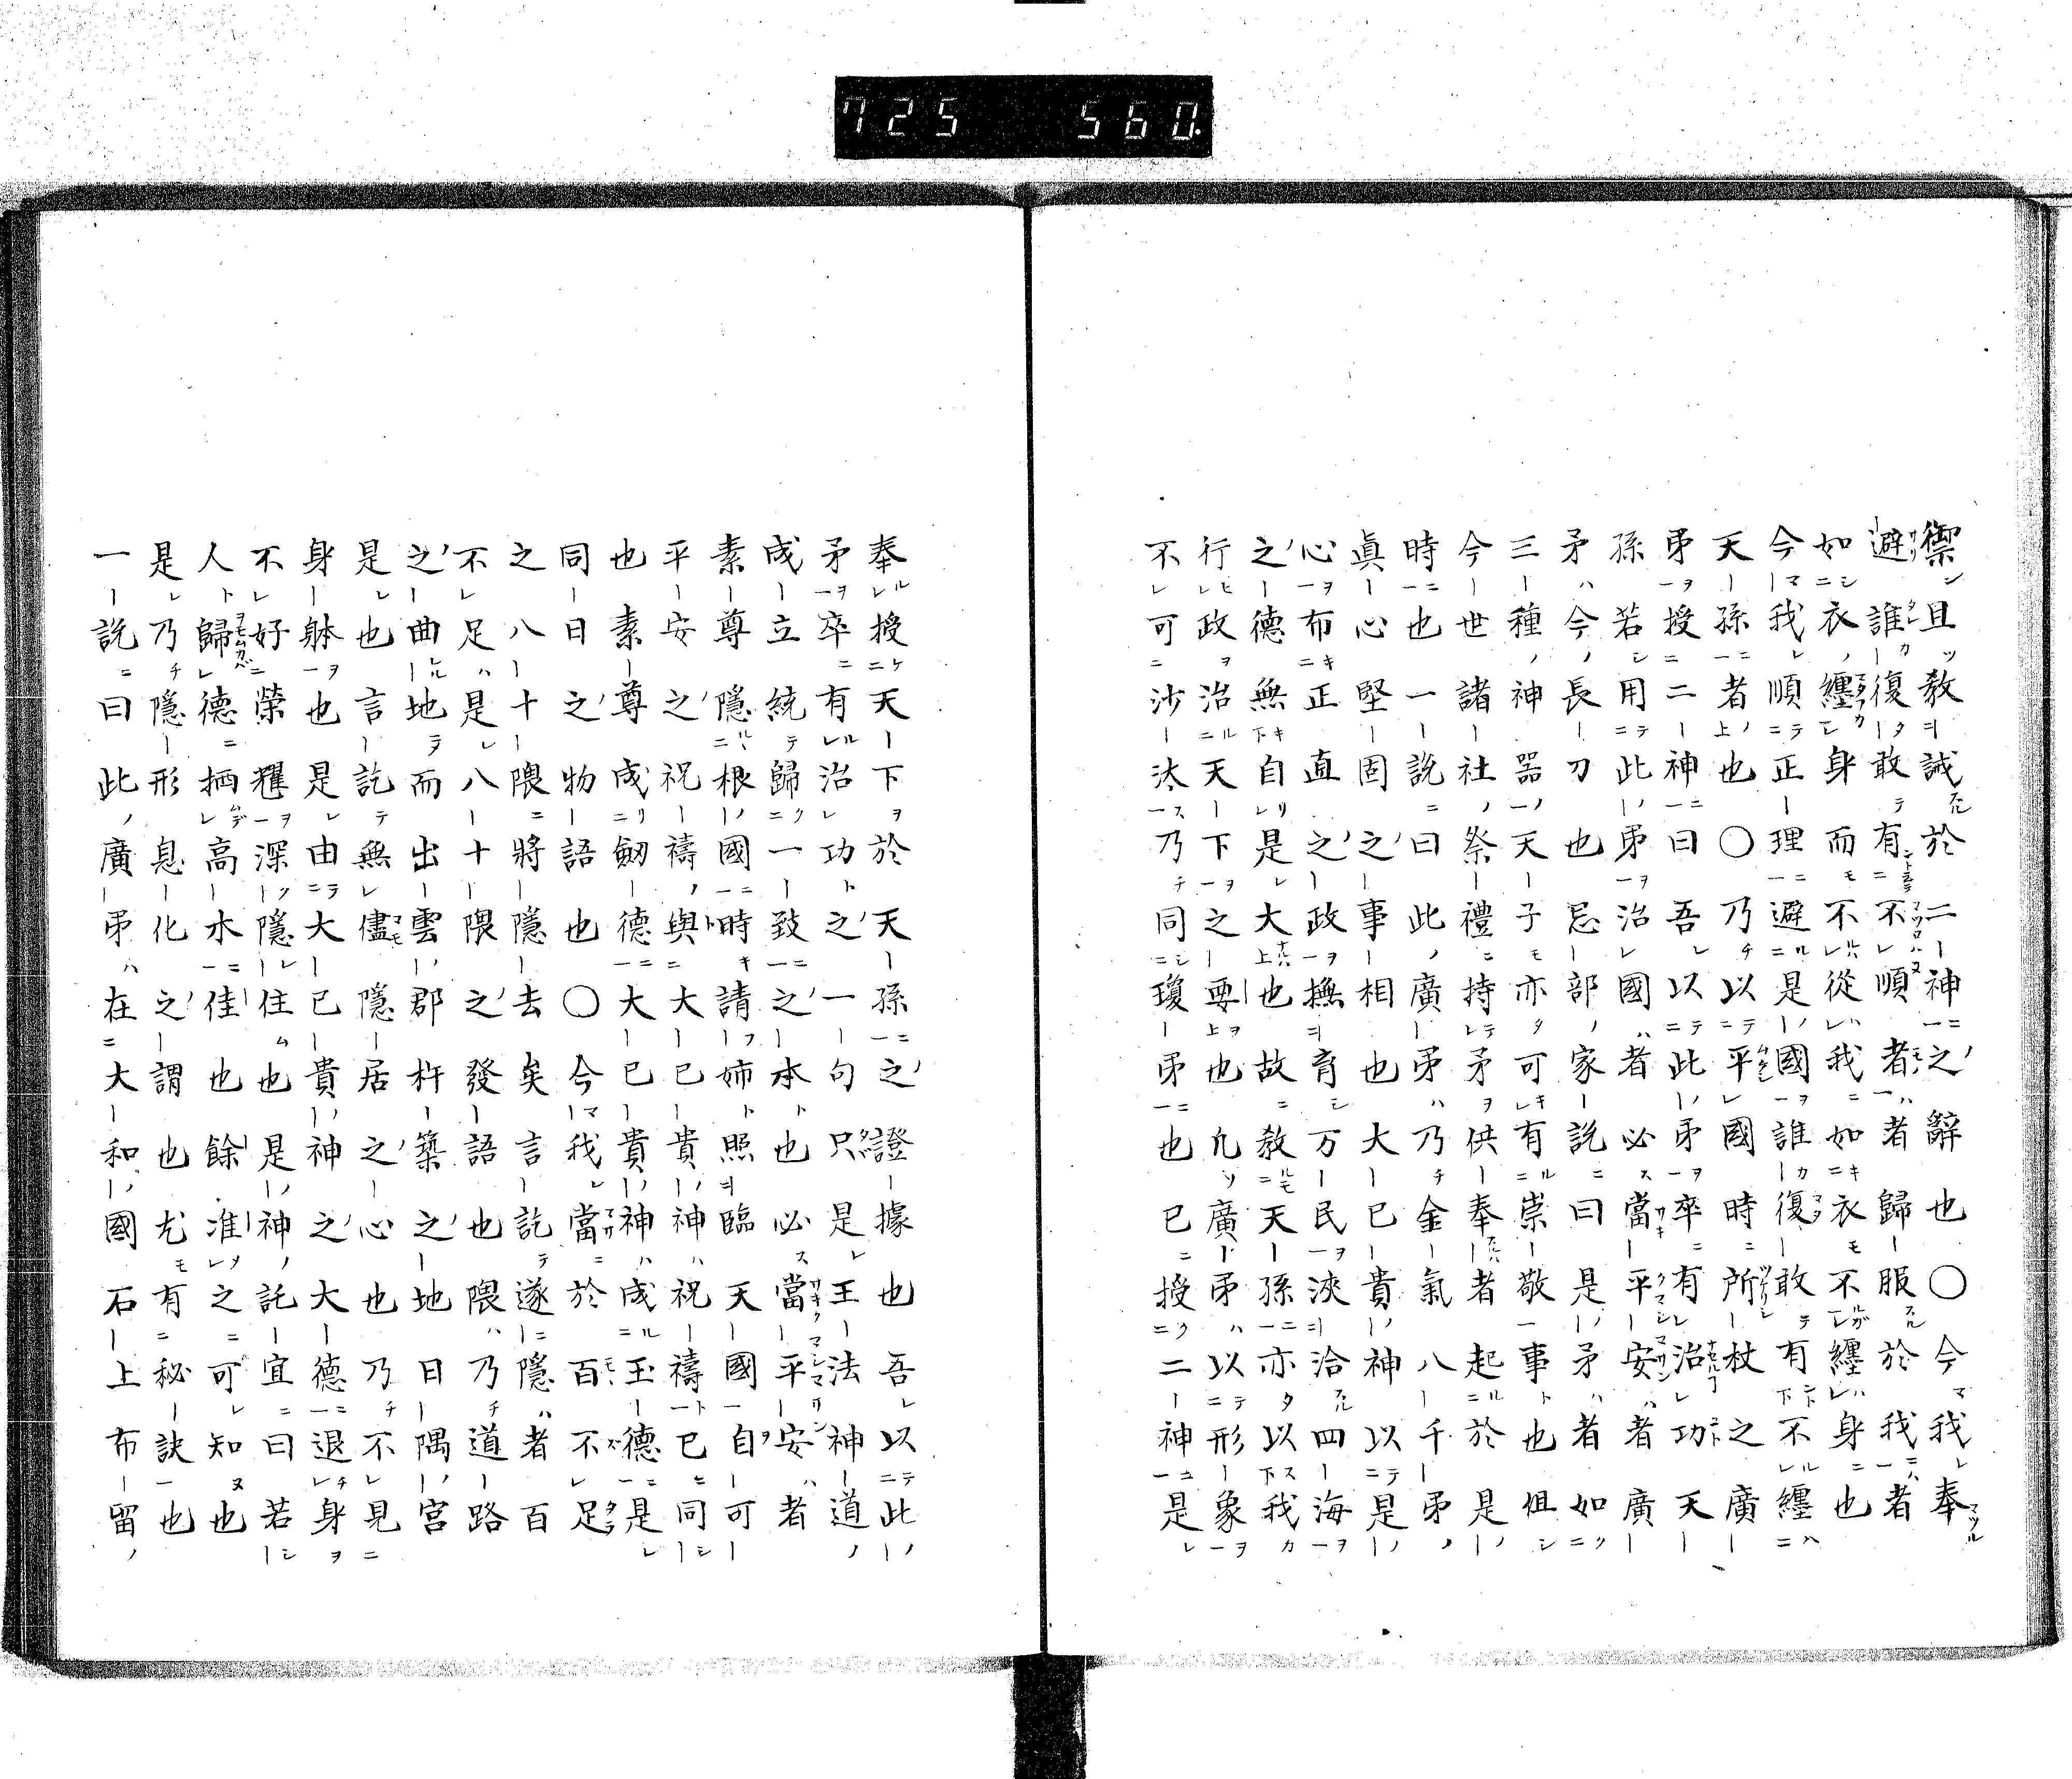 725 560.
禦且教誡於二神之辭也〇今我奉
避誰復敢有不順者者歸服於我者
如衣纏身而不從我如衣不纏身也
今我順正理避是國誰復敢有不纏
天孫者也〇乃以平國時所杖之廣
矛授二神曰吾以此矛卒有治功天
孫若用此矛治國者必當平安者廣
矛今長刀也忌部家說曰是矛者如
三種神器天子亦可有崇敬事也但
今世諸社祭禮持矛供奉者起於是
時也一說曰此廣矛乃金氣八千矛
眞心堅固之事相也大已貴神以是
心布正直之政撫育万民浹洽四海
之德無自是大也故教天孫亦以我
行政治天下之要也凢廣矛以形象
不可沙汰乃同瓊矛也已授二神是
奉授天下於天孫之證據也吾以此
矛卒有治功之一句只是王法神道
成立統歸一致之本也必當平安者
素尊隱根國時請姉照臨天國自可
平安之祝禱與大已貴神祝禱已同
也素尊成劔德大已貴神成玉德是
同日之物語也〇今我當於百不足
之八十隈將隱去矣言訖遂隱者百
不足是八十隈之發語也隈乃道路
之曲地而出雲郡杵築之地日隅宮
是也言訖無儘隱居之心也乃不見
身躰也是由大已貴神之大德退身
不好榮耀深隱住也是神託宣曰若
人歸德栖高水佳也餘准之可知也
是乃隱形息化之謂也尤有秘訣也
一說曰此廣矛在大和國石上布留